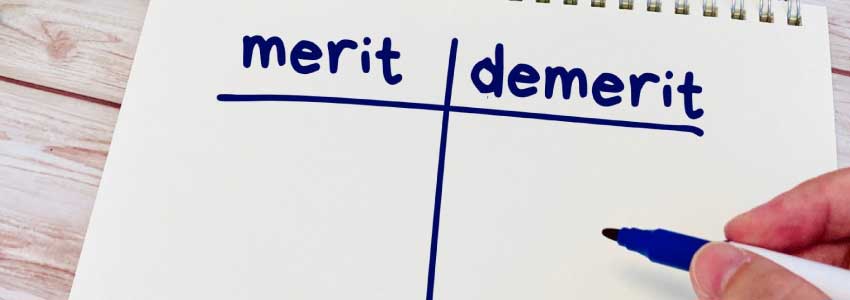 merit demerit